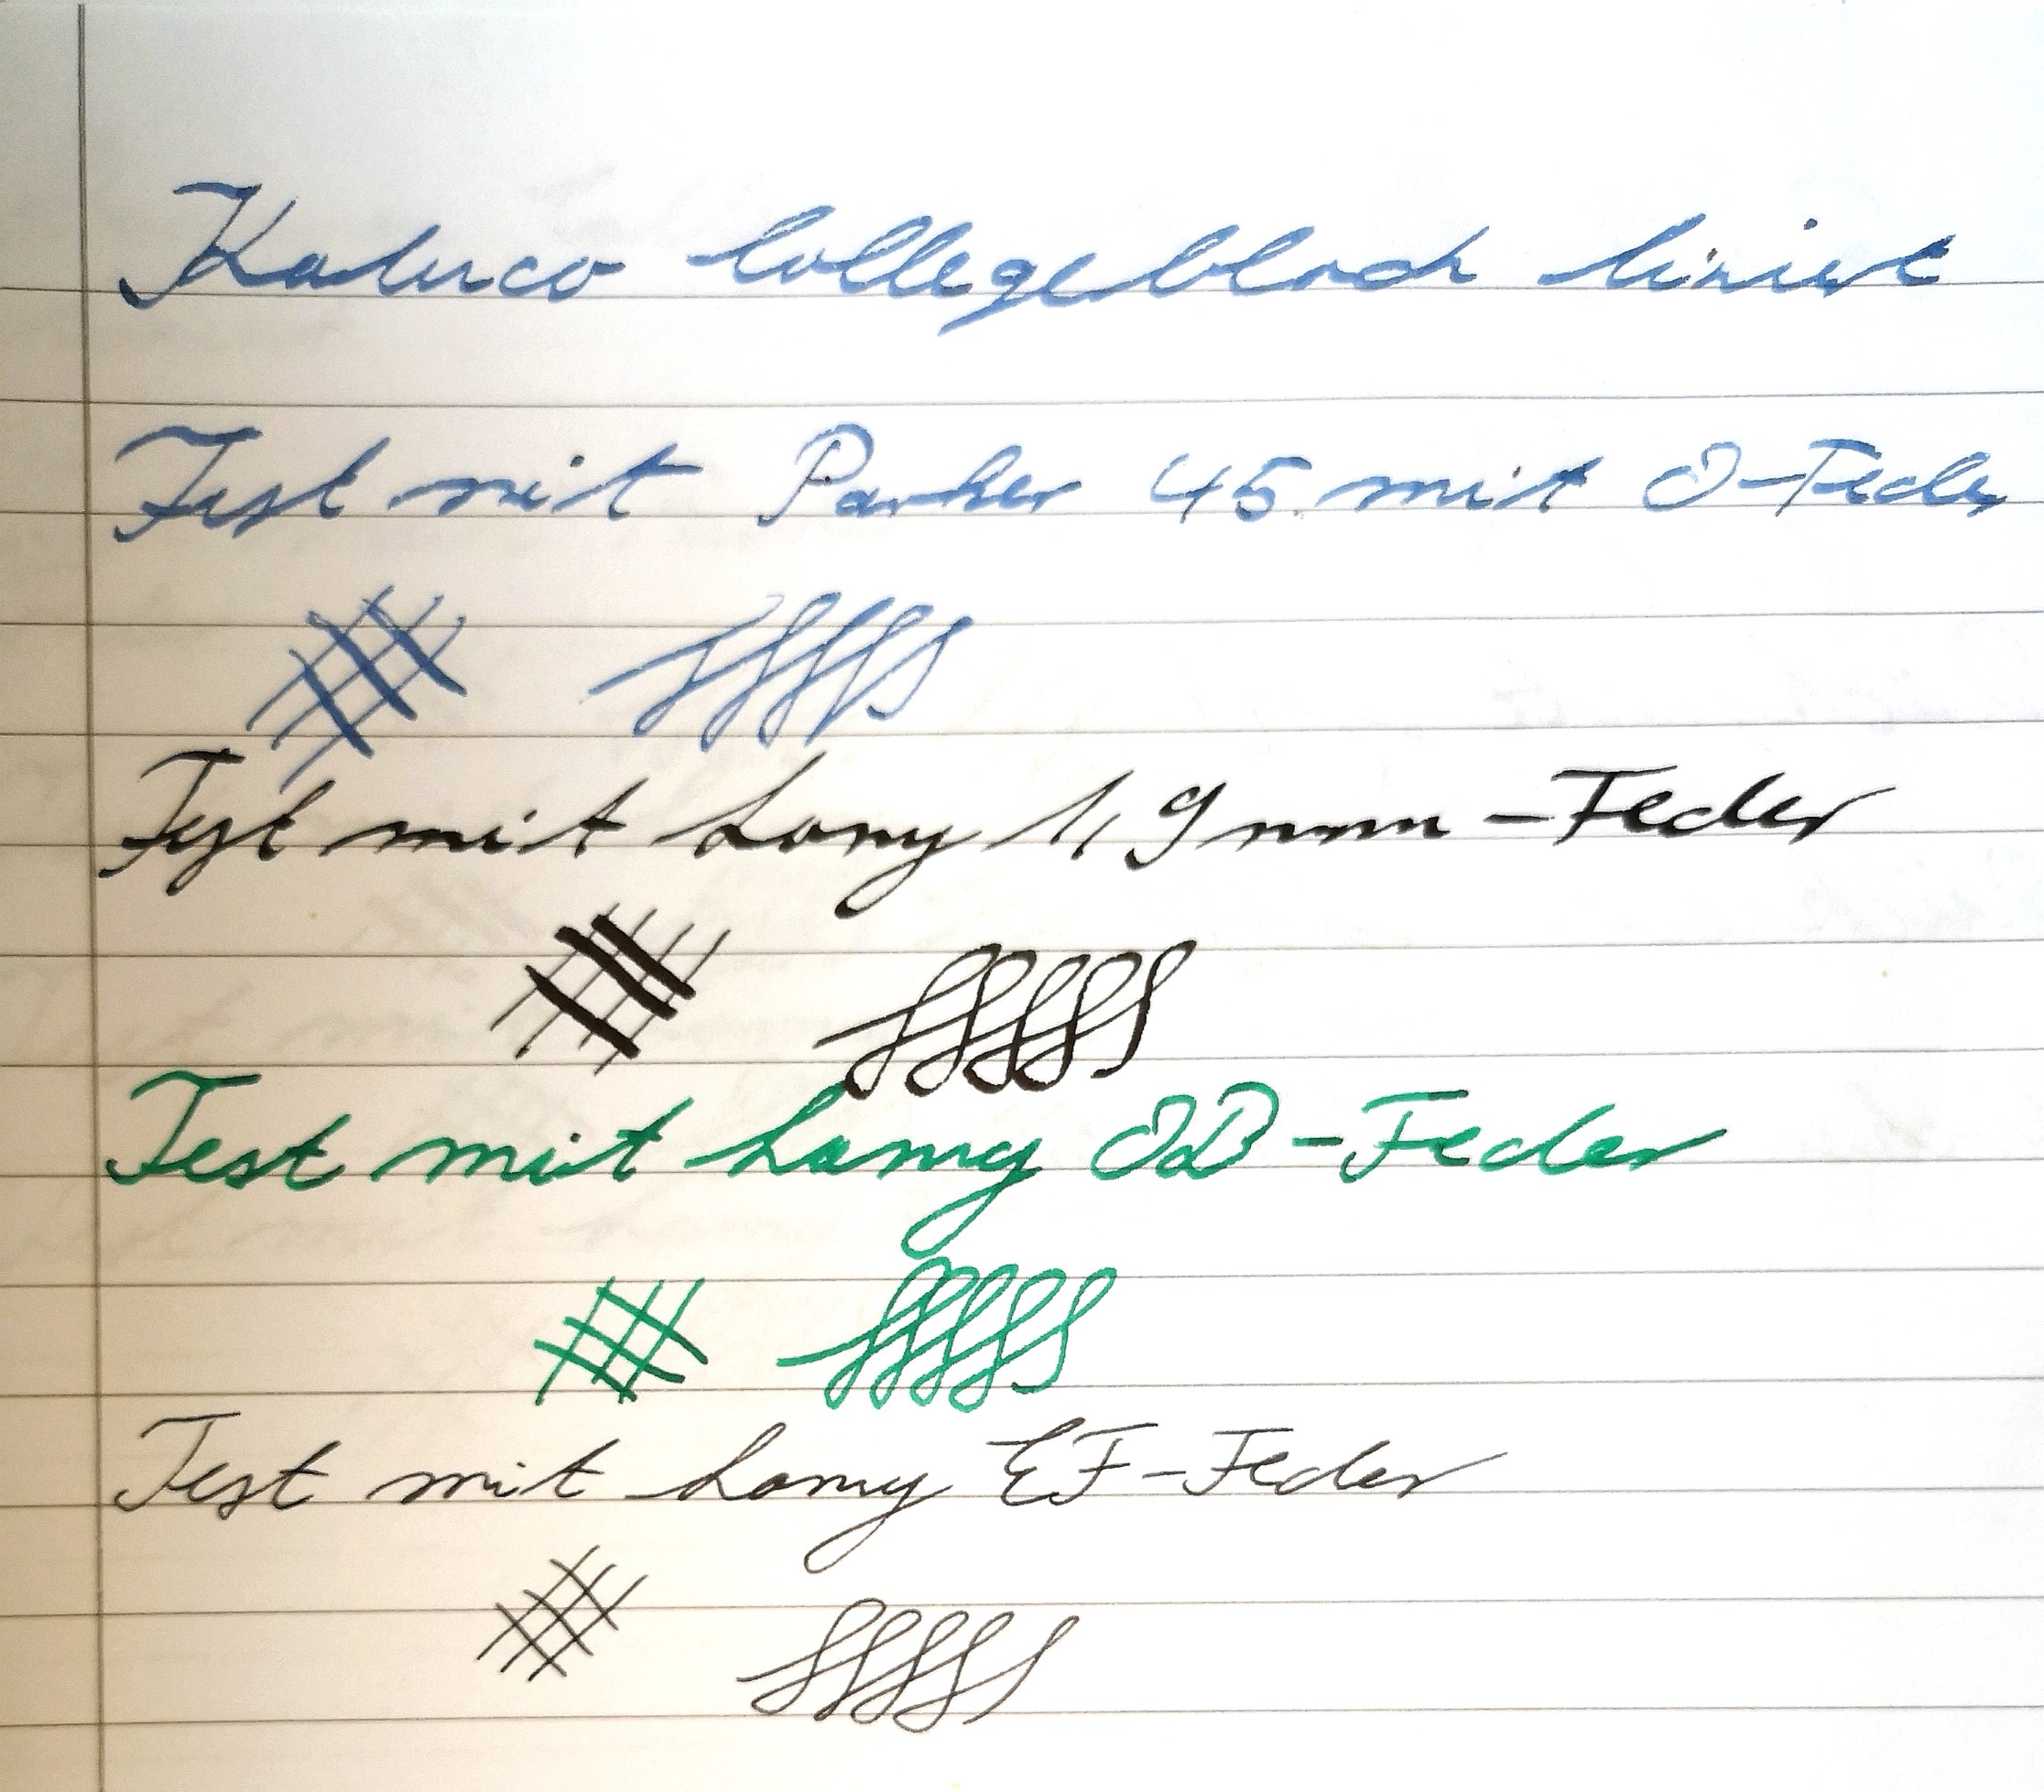 Kaluco Collegeblock liniert
Test mit Parker 45 mit O-Feder
Test mit Lamy 1,9 mm-Feder
Test mit Lamy OB-Feder
Test mit Lamy EF-Feder